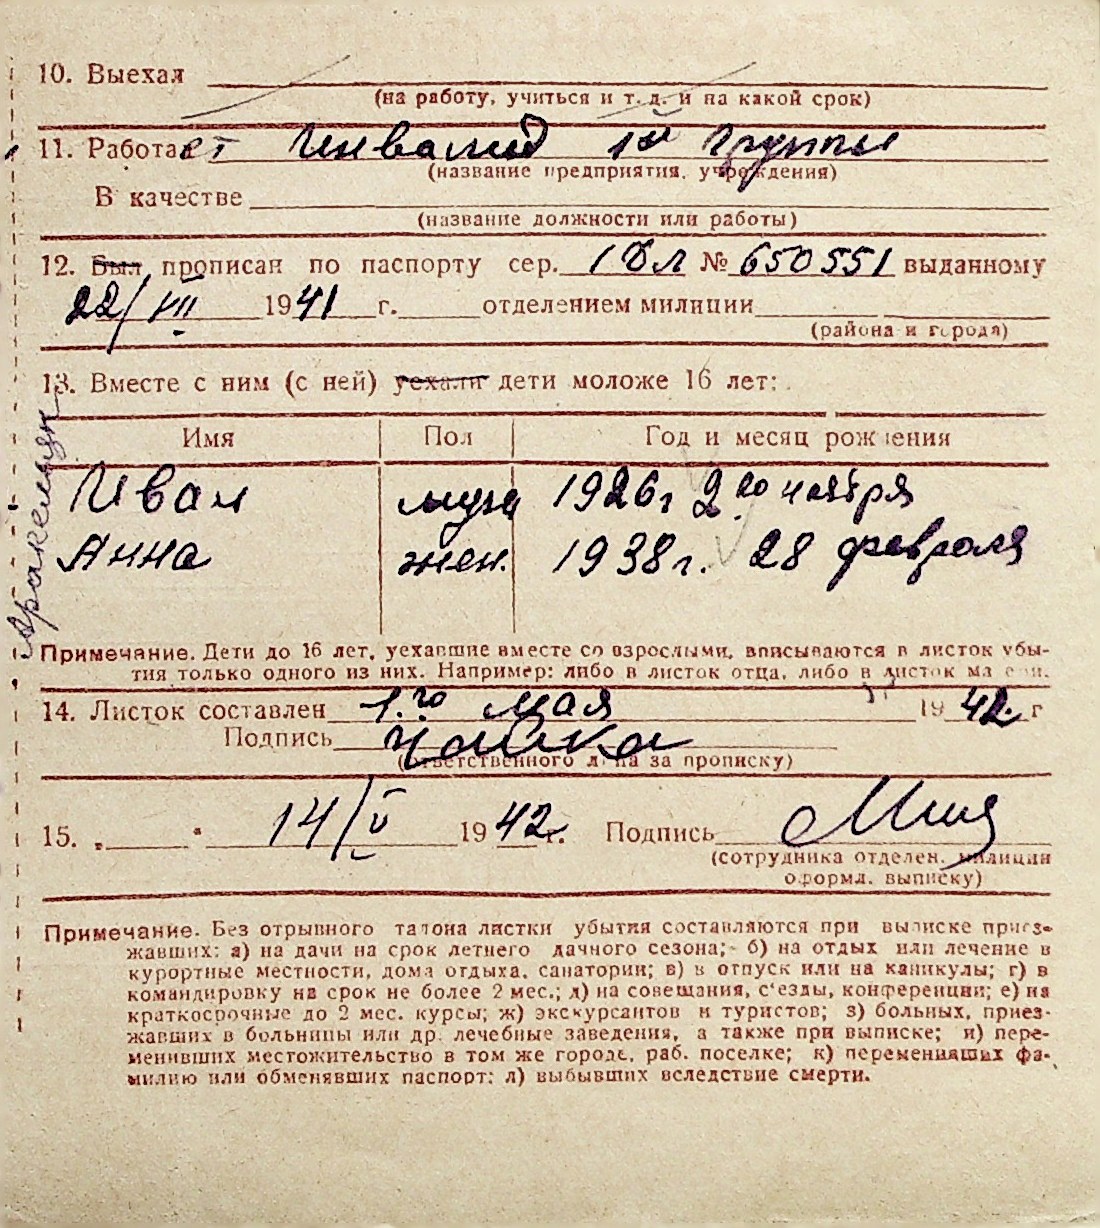 10. Выехал
(на работу, учиться и т. д. и на какой срок)
11. Работает Инвалид 1ой группы
(название предприятия, учреждения)
В качестве
(название должности или работы)
12. Был прописан по паспорту сер. № 650551 выданному
22/VII 1941 г. отделением милиции
(района и города)
13. Вместе с ним (с ней) уехали дети моложе 16 лет:
Имя Пол Год и месяц рождения
Иван муж 1926г 2го ноября
Анна жен. 1938г. 28 февраля
Примечание. Дети до 16 лет, уехавшие вместе со взрослыми, вписываются в листок убы-
тия только одного из них. Например: либо в листок отца, либо в листок матери.
14. Листок составлен 1.го мая 1942 г
Подпись
(ответственного лица за прописку)
15. „ " 14/V 1942 г. Подпись
(сотрудника отделен. милиции
оформл. выписку)
Примечание. Без отрывного талона листки убытия составляются при выписке приез-
жавших: а) на дачи на срок летнего дачного сезона; б) на отдых или лечение в
курортные местности, дома отдыха, санатории; в) в отпуск или на каникулы; г) в
командировку на срок не более 2 мес.; д) на совещания, с'езды, конференции; е) на
краткосрочные до 2 мес. курсы; ж) экскурсантов и туристов; з) больных, приез-
жавших в больницы или др. лечебные заведения, а также при выписке; и) пере-
менивших местожительство в том же городе, раб. поселке; к) переменивших фа-
милию или обменявших паспорт; л) выбывших вследствие смерти.